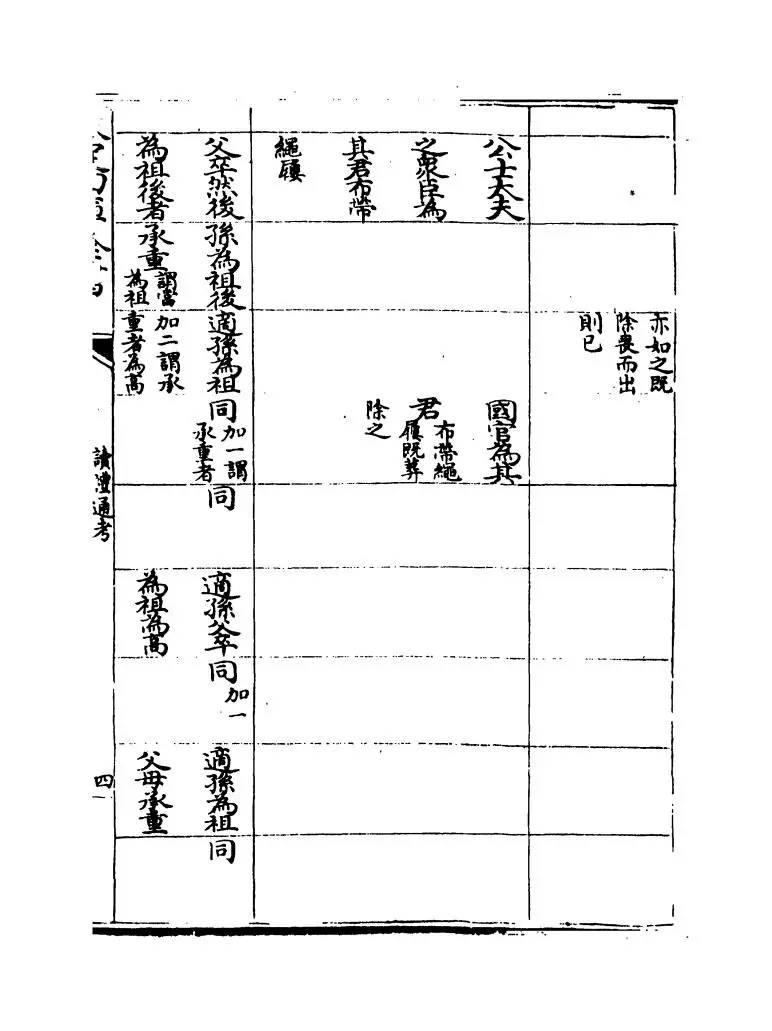 亦如之既
除喪而出
則已
公士大夫
之眾臣為
其君布帶
繩屨
國官為其
君布帶繩
屨既葬
除之
父卒然後
為祖後者
孫為祖後
承重謂當
為祖
適孫為祖
加二謂承
重者為高
同加一謂
承重者
同
適孫父卒
為祖為高
同加一
適孫為祖
父母承重
同
讀禮通考
四